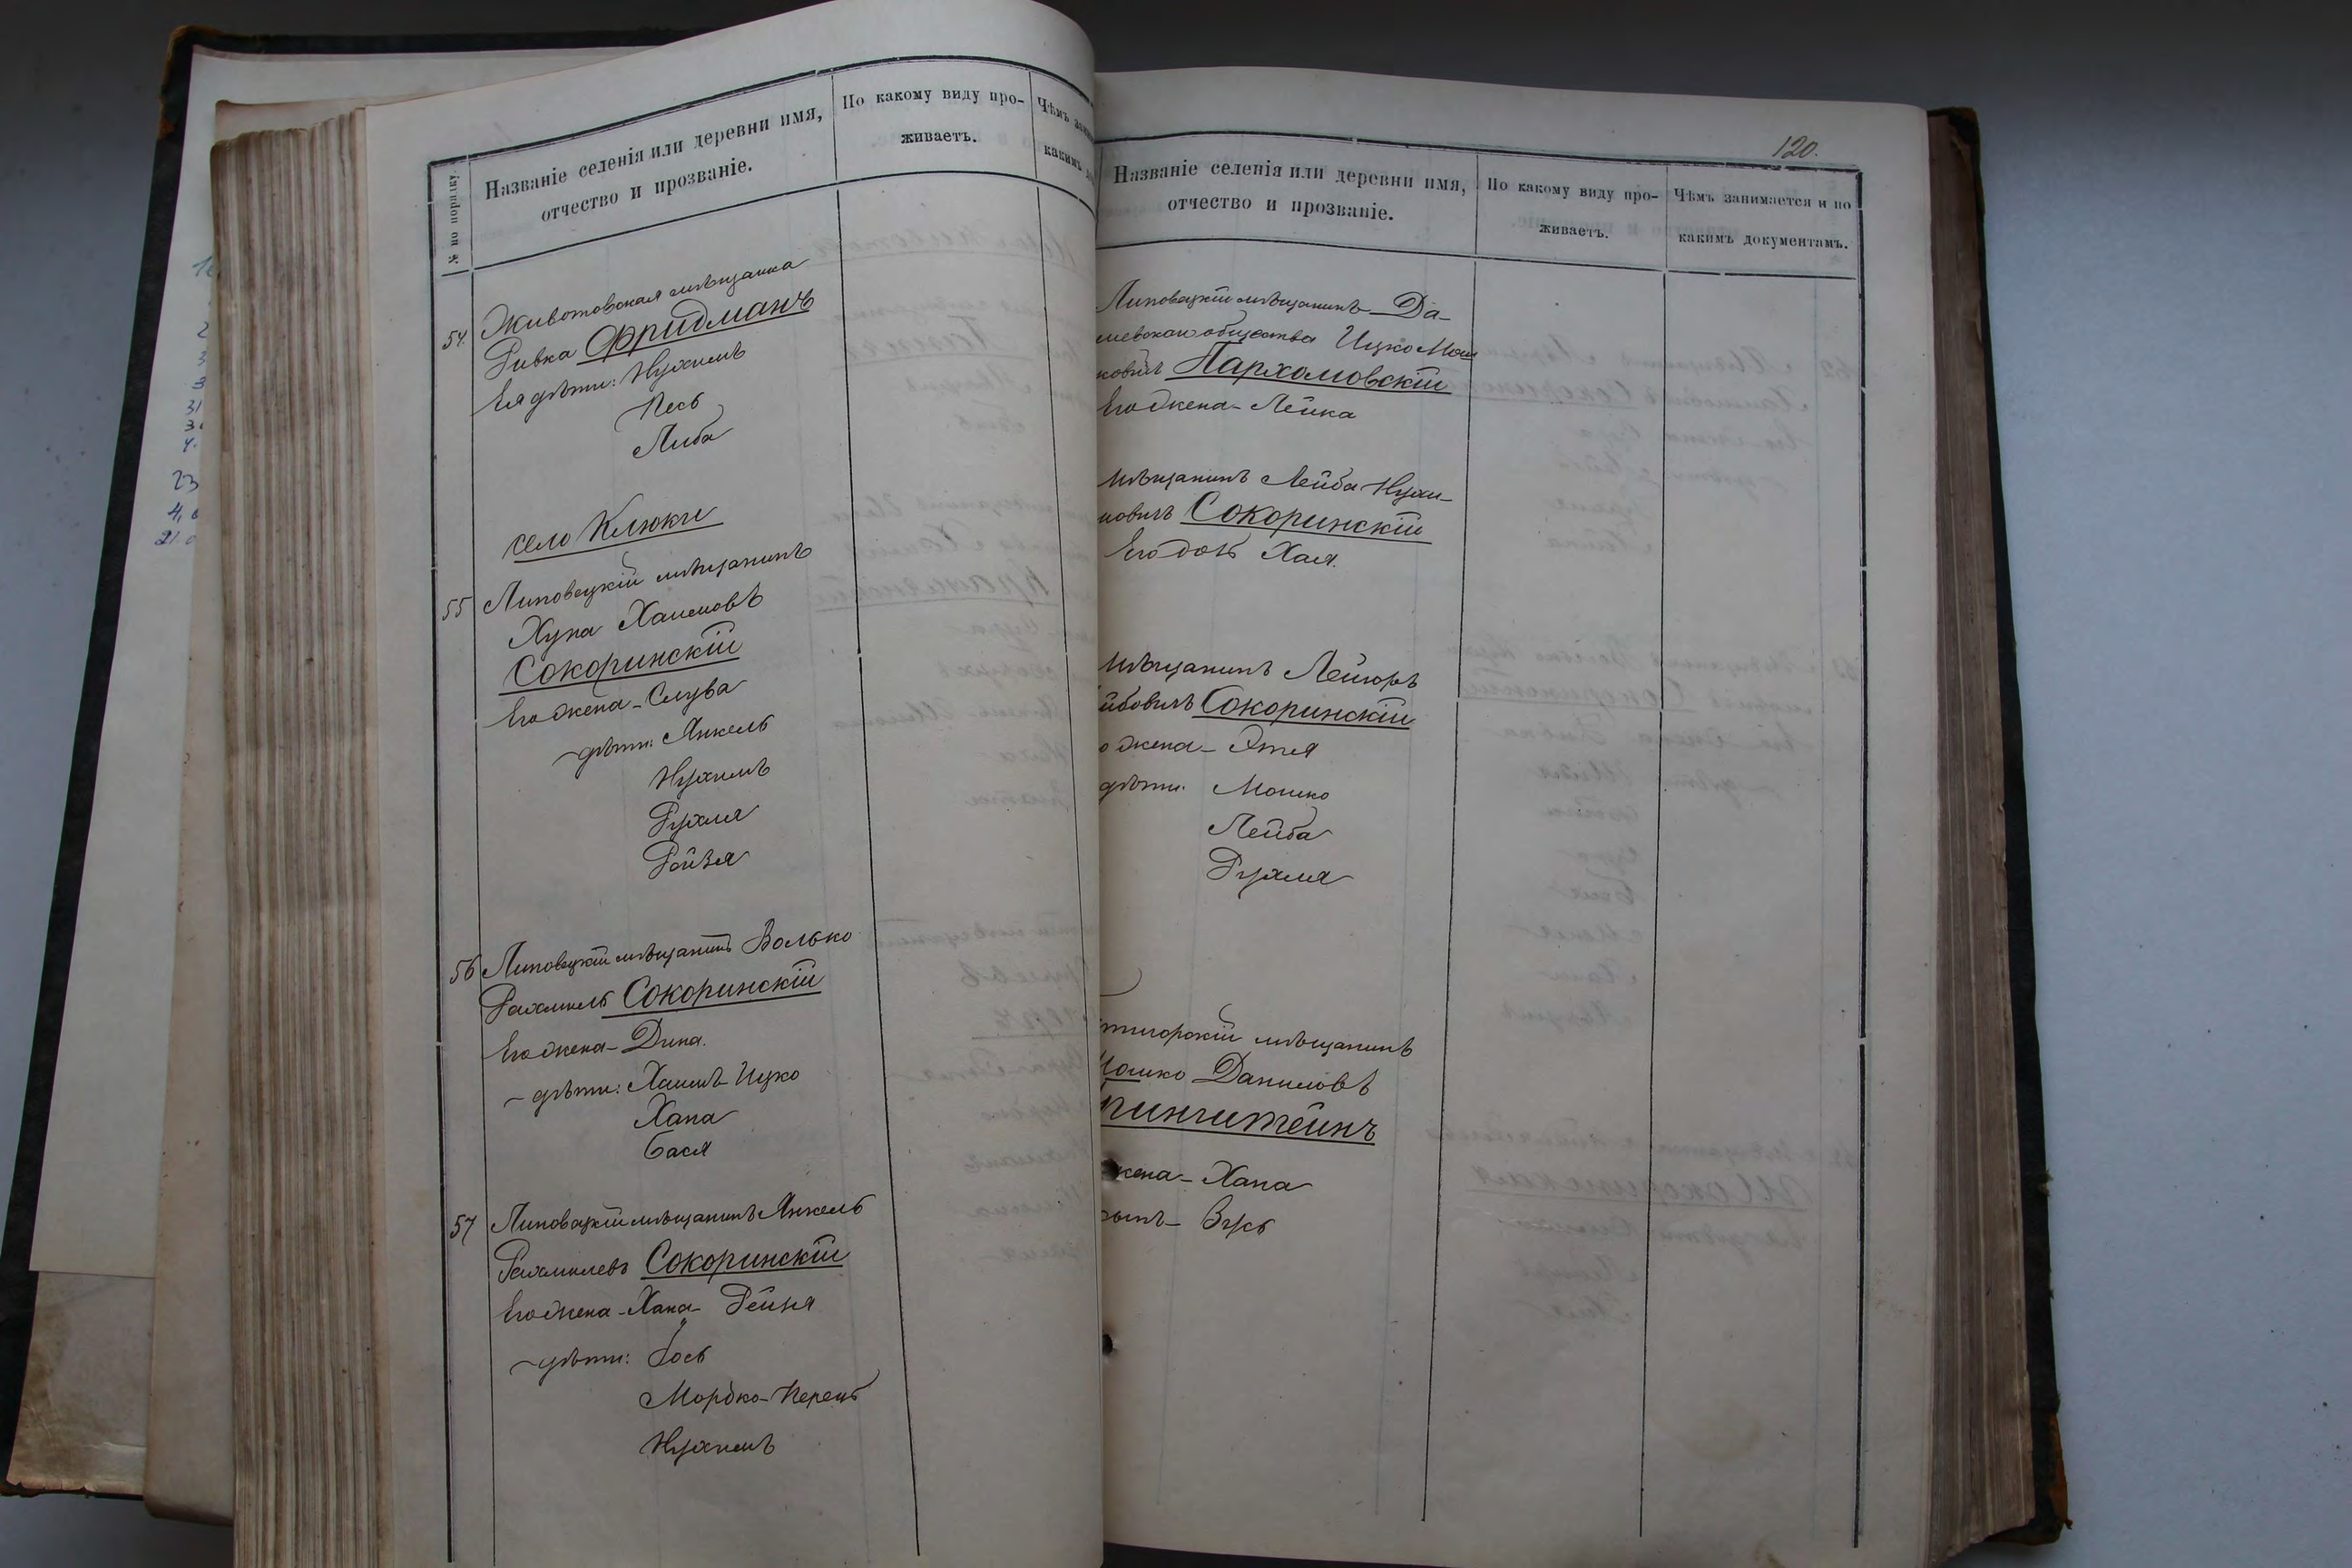 № по порядку.
Названіе селенія или деревни имя,
отчество и прозваніе.
По какому виду про-
живаетъ.
Чѣмъ
какимъ
54. Животовская мѣщанка
Ривка Фридманъ
Ея дѣти: Нухимъ
Песь
Либа
село Клюки
55 Липовецкій мѣщанинъ
Хуна Хаимовъ
Сокоринскій
Его жена - Слува
дѣти: Янкель
Нухимъ
Рухля
Ройзя
56 Липовецкій мѣщанинъ Волько
Рахмиль Сокоринскій
Его жена - Дина.
дѣти: Хаимъ Ицко
Хана
Бася
57 Липовецкій мѣщанинъ Янкель
Рахмилевъ Сокоринскій
Его жена - Хана - Рейзя
дѣти: Іось
Мордко - Перецъ
Нухимъ
120.
Названіе селенія или деревни имя,
отчество и прозваніе.
По какому виду про-
живаетъ.
Чѣмъ занимается и по
какимъ документамъ.
Липовецкій мѣщанинъ Да-
шевскаго общества Ицко Мош
ковичъ Пархомовскій
Его жена - Лейка
Мѣщанинъ Лейба Нухи-
мовичъ Сокоринскій
Его дочь Хая.
Мѣщанинъ Лейзоръ
йбовичъ Сокоринскій
о жена - Этля
дѣти: Мошко
Лейба
Рухля
тигорскій мѣщанинъ
Мошко Даниловъ
рингитейнъ
жена - Хана
сынъ - Зусь